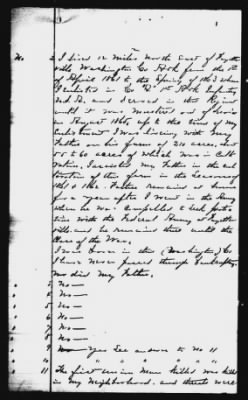 No 2 I lived 12 miles North East of Fayette
ville Washington Co Ark from the 6th
of April 1861 to the Spring of 1863 when
I enlisted in Co "B" 1st Ark Infantry
and served in the Regiment
until it was mustered out of service
in August 1865, up to the time of my
Enlistment I was living with my
Father on his farm of 210 acres, about
55 to 60 acres of which was in Cult
ivation, I assisted my Father in the cul
tivation of this farm in the Seasons of
1861 & 1862. Father remained at home
for a year after I went in the Army
when he was compelled to seek protec
tion with the Federal Army at Fayette
ville and he remained there until the
close of the War.
I was born in this (Washington) Co
I have never passed through Bankruptcy
nor did my Father.
" 5 No—
" 6 No—
" 7 No—
" No—
" No—
" 8 No—
" 9 Yes See answer to No 11
" 10 " " " " " "
" 11 The first Union Man Killed was killed
in my Neighborhood. and threats were